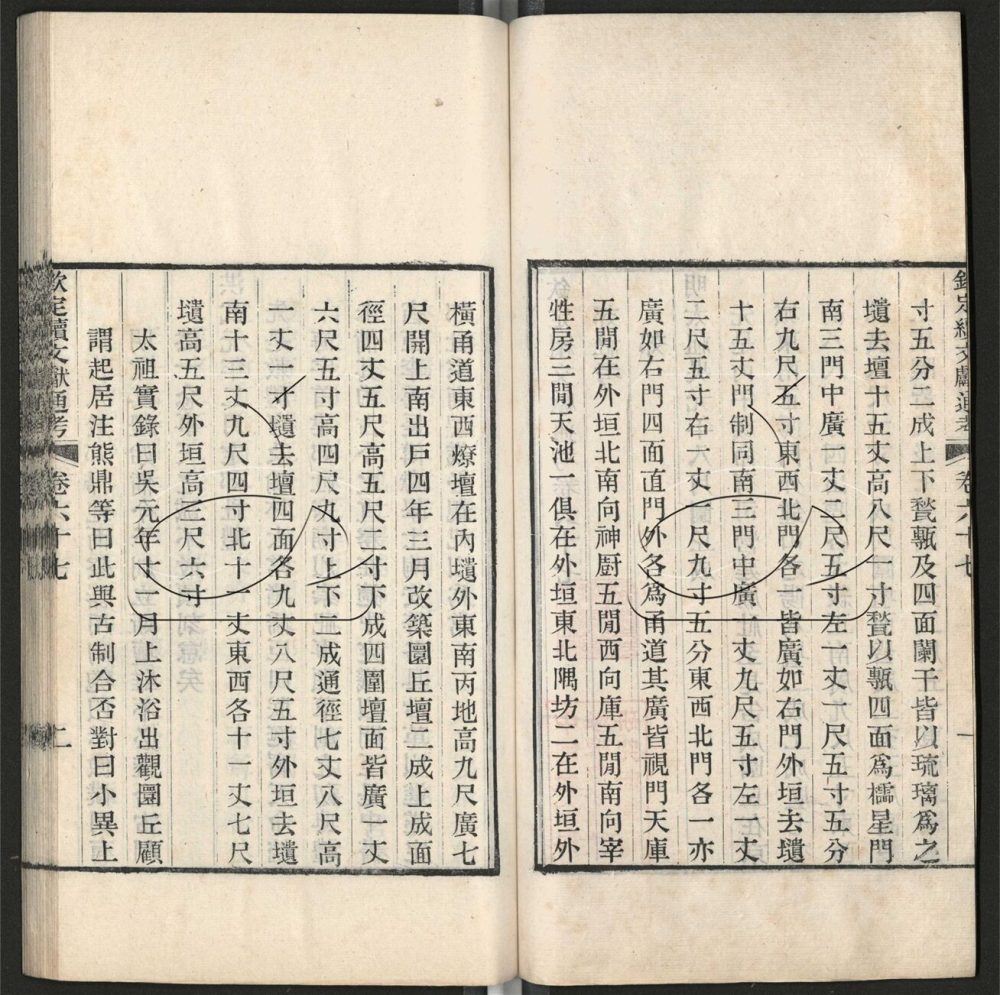 欽定續文獻通考 卷六十七 一
寸五分二成上下甃甎及四面闌干皆以琉璃為之
壝去壇十五丈高八尺一寸甃以甎四面為櫺星門
南三門中廣一丈二尺五寸左一丈一尺五寸五分
右九尺五寸東西北門各一皆廣如右門外垣去壝
十五丈門制同南三門中廣一丈九尺五寸左一丈
二尺五寸右一丈一尺九寸五分東西北門各一亦
廣如右門四面直門外各為甬道其廣皆視門天庫
五閒在外垣北南向神厨五閒西向庫五閒南向宰
牲房三閒天池一俱在外垣東北隅坊二在外垣外
橫甬道東西燎壇在內壝外東南丙地高九尺廣七
尺開上南出戶四年三月改築圜丘壇二成上成面
徑四丈五尺高五尺二寸下成四圍壇面皆廣一丈
六尺五寸高四尺九寸上下二成通徑七丈八尺高
一丈一寸壝去壇四面各九丈八尺五寸外垣去壝
南十三丈九尺四寸北十一丈東西各十一丈七尺
壝高五尺外垣高三尺六寸
太祖實錄曰吳元年十一月上沐浴出觀圜丘顧
謂起居注熊鼎等曰此與古制合否對曰小異上
欽定續文獻通考 卷六十七 二